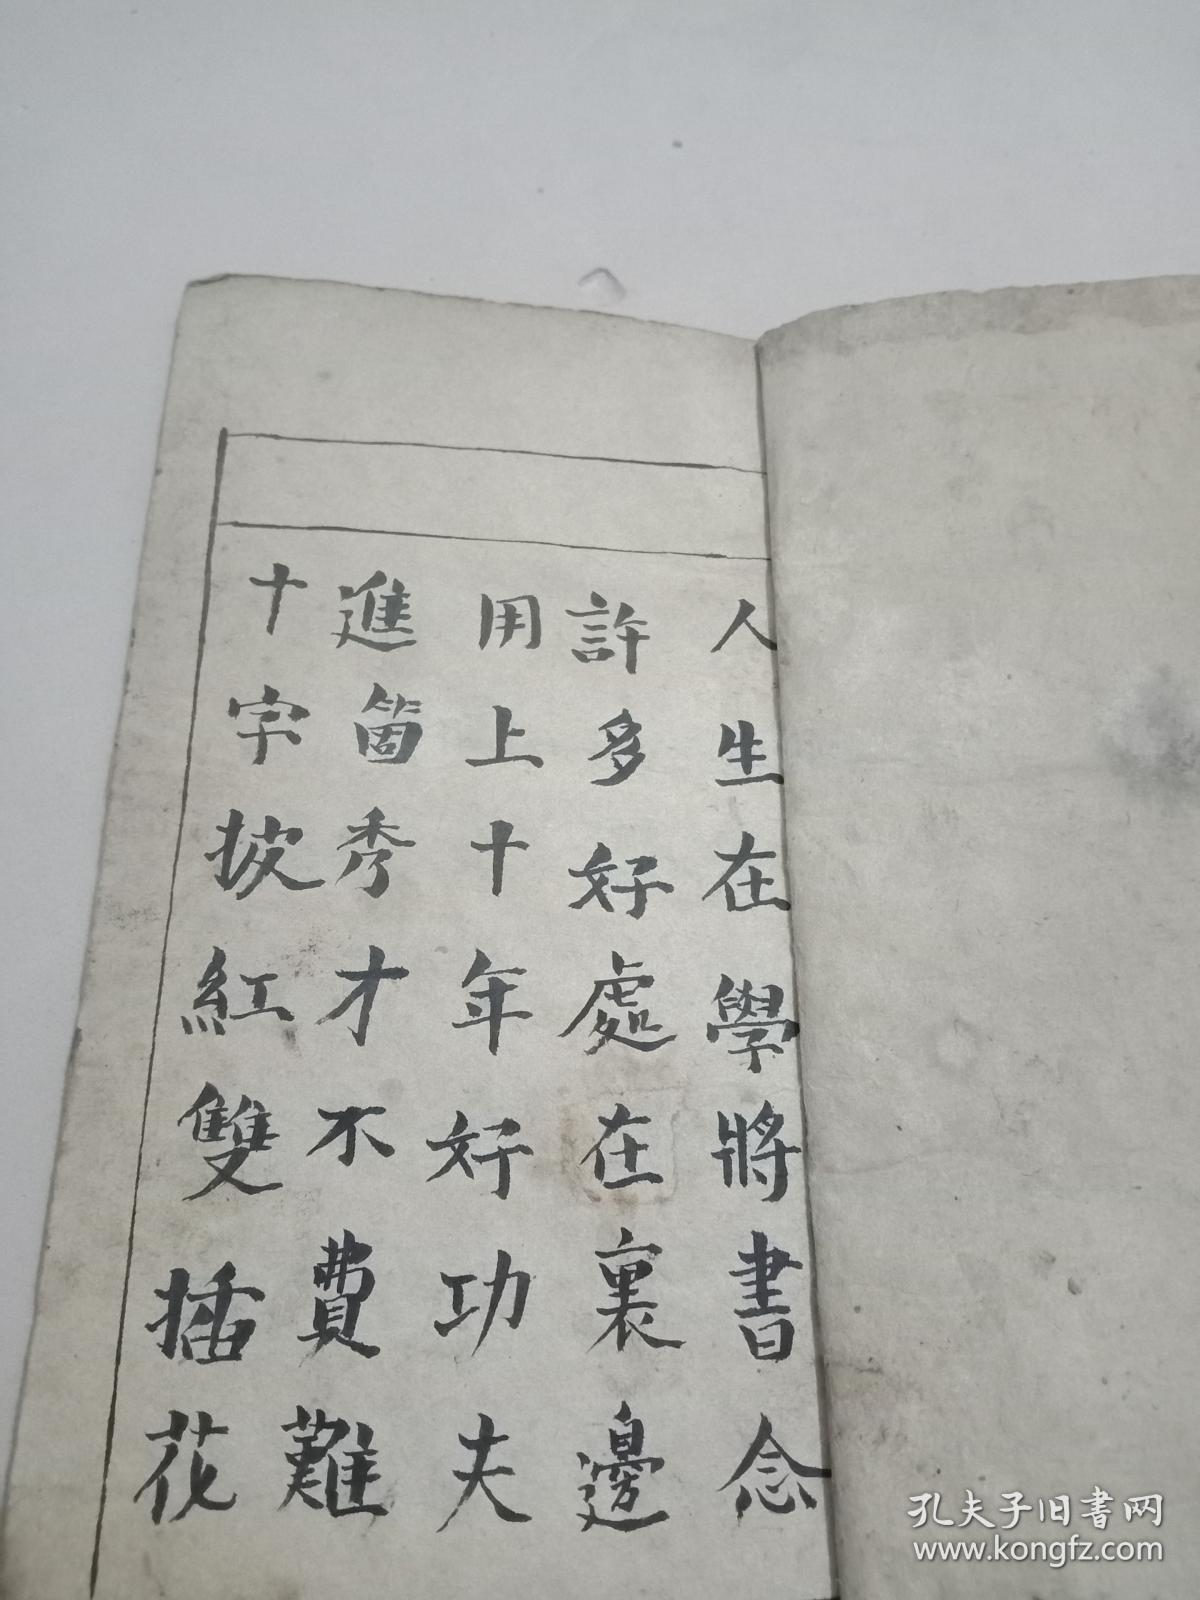 人生在學將書念
許多好處在裏邊
用上十年好功夫
進箇秀才不費難
十字披紅雙插花
孔夫子旧书网
www.kongfz.com